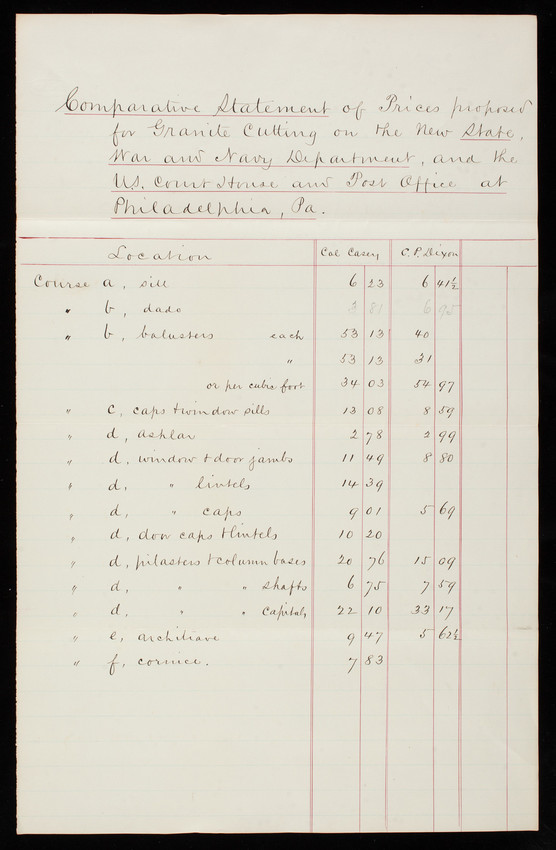 Comparative Statement of Prices proposed
for Granite Cutting on the New State,
War and Navy Department, and the
U.S. Court House and Post Office at
Philadelphia, Pa.
Location Col Casey O.P. Dixon
Course a, sill 6 23 6 41½
" b, dado 3 81 6 95
" b, balusters each 53 13 40
" 53 13 31
or per cubic foot 34 03 54 97
" c, caps + window sills 13 08 8 59
" d, ashlar 2 78 2 99
" d, window + door jambs 11 49 8 80
" d, " lintels 14 39
" d, " caps 9 01 5 69
" d, door caps + lintels 10 20
" d, pilasters + column bases 20 76 15 09
" d, " " shafts 6 75 7 59
" d, " " capitals 22 10 33 17
" e, architrave 9 47 5 62½
" f, cornice. 7 83